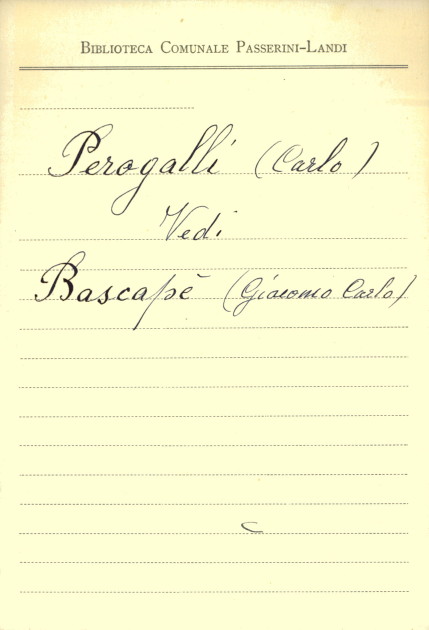 BIBLIOTECA COMUNALE PASSERINI-LANDI
Perogalli (Carlo)
Vedi
Bascapè (Giacomo Carlo)